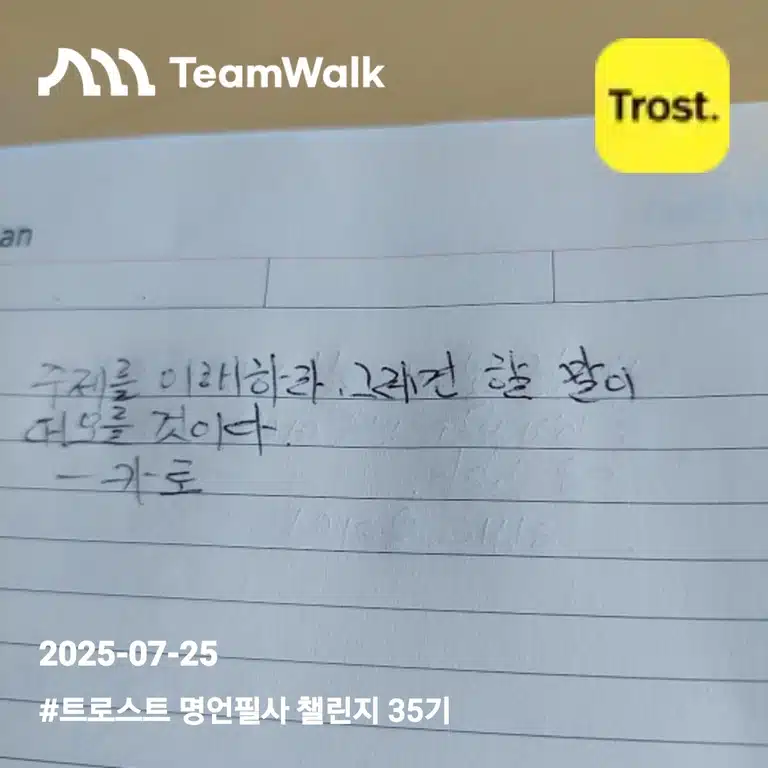 TeamWalk
Trost.
an
주제를 이해하라. 그러면 할 말이
떠오를 것이다.
- 카토
2025-07-25
#트로스트 명언필사 챌린지 35기